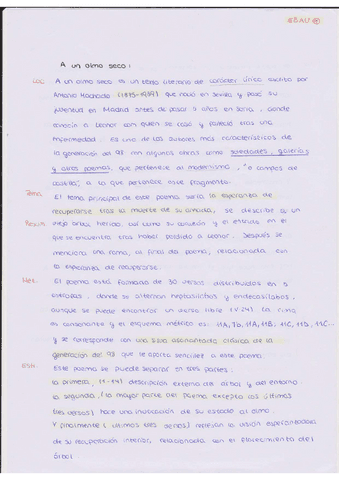 EBAU
A un olmo seco:
Loc A un olmo seco es un texto literario de carácter lírico escrito por
Antonio Machado (1875-1939) que nació en Sevilla y pasó su
juventud en Madrid antes de pasar 5 años en Soria, donde
conoció a Leonor con quien se casó y pareció tras una
enfermedad. es uno de los autores mas característicos de
la generación del 98 con algunas obras como soledades, galerías
y otros poemas, que pertenece al modernismo, "o campos de
castilla", a la que pertenece este fragmento.
Tema El tema principal de este poema sería la esperanza de
recuperarse tras la muerte de su amada, se describe a un
Resum viejo árbol herido, así como su situación y el estado en el
que se encuentra tras haber perdido a Leonor. Después se
menciona una rama, al final del poema, relacionada con
la esperanza de recuperarse.
Met. El poema está formado de 30 versos distribuidos en 5
estrofas, donde se alternan heptasílabos y endecasílabos,
aunque se puede encontrar un verso libre (v 24) La rima
es consonante y el esquema métrico es: 11A, 7b, 11A, 11B, 11C, 11D, 11C...
y se corresponde con una silva asonantada clásica de la
generación del 98 que se aporta sencillez a este poema.
Estr. Este poema se puede separar en tres partes:
la primera, (1-14) descripción externa del árbol y del entorno
la segunda, (la mayor parte del poema excepto los últimos
tres versos) hace una invocación de su estado al olmo.
Y finalmente (últimos tres versos) refleja la visión esperanzadora
de su recuperación interior, relacionada con el florecimiento del
árbol